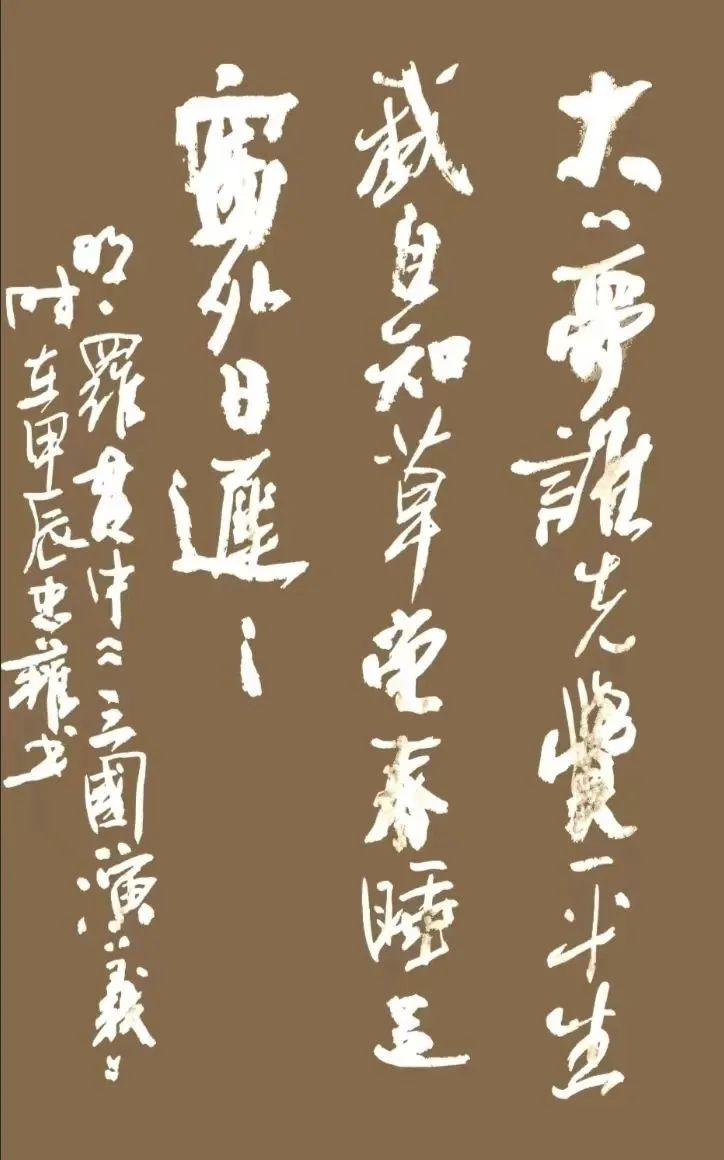 大夢誰先覺平生
我自知草堂春睡足
窗外日遲〻
明·羅貫中《三國演義》
时在甲辰忠书